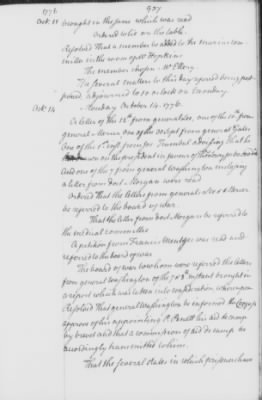 1776 357
Oct. 11 brought in the same which was read
Ordered to lie on the table.
Resolved That a member be added to the marine com-
mittee in the room of Mr Hopkins.
The member chosen Mr Ellery.
The several matters to this day referred being post
poned adjourned to 10 o'Clock on Monday.
Oct. 14 Monday October 14. 1776.
A letter of the 12th from general Lee, one of the 10th from
general Mercer, one of the 30 Sept from general Gates
One of the 1st inst from Jon Trumbull
and one of the 7 from general Washington enclosing
a letter from doct Morgan were read
Ordered That the letters from generals Lee & Mercer
be referred to the board of war.
That the letter from doct Morgan be referred to
the medical committee
A petition from Francis Mentges was read and
referred to the board of war.
The board of war to whom were referred the letters
from general Washington of the 7 & 8th instant brought in
a report which was taken into consideration whereupon
Resolved That general Washington be informed the Congress
approve of his appointing P. Penett his aid de camp
by brevet and that a commission of aid de camp be
accordingly transmitted to him.
That the several states in which prisoners have